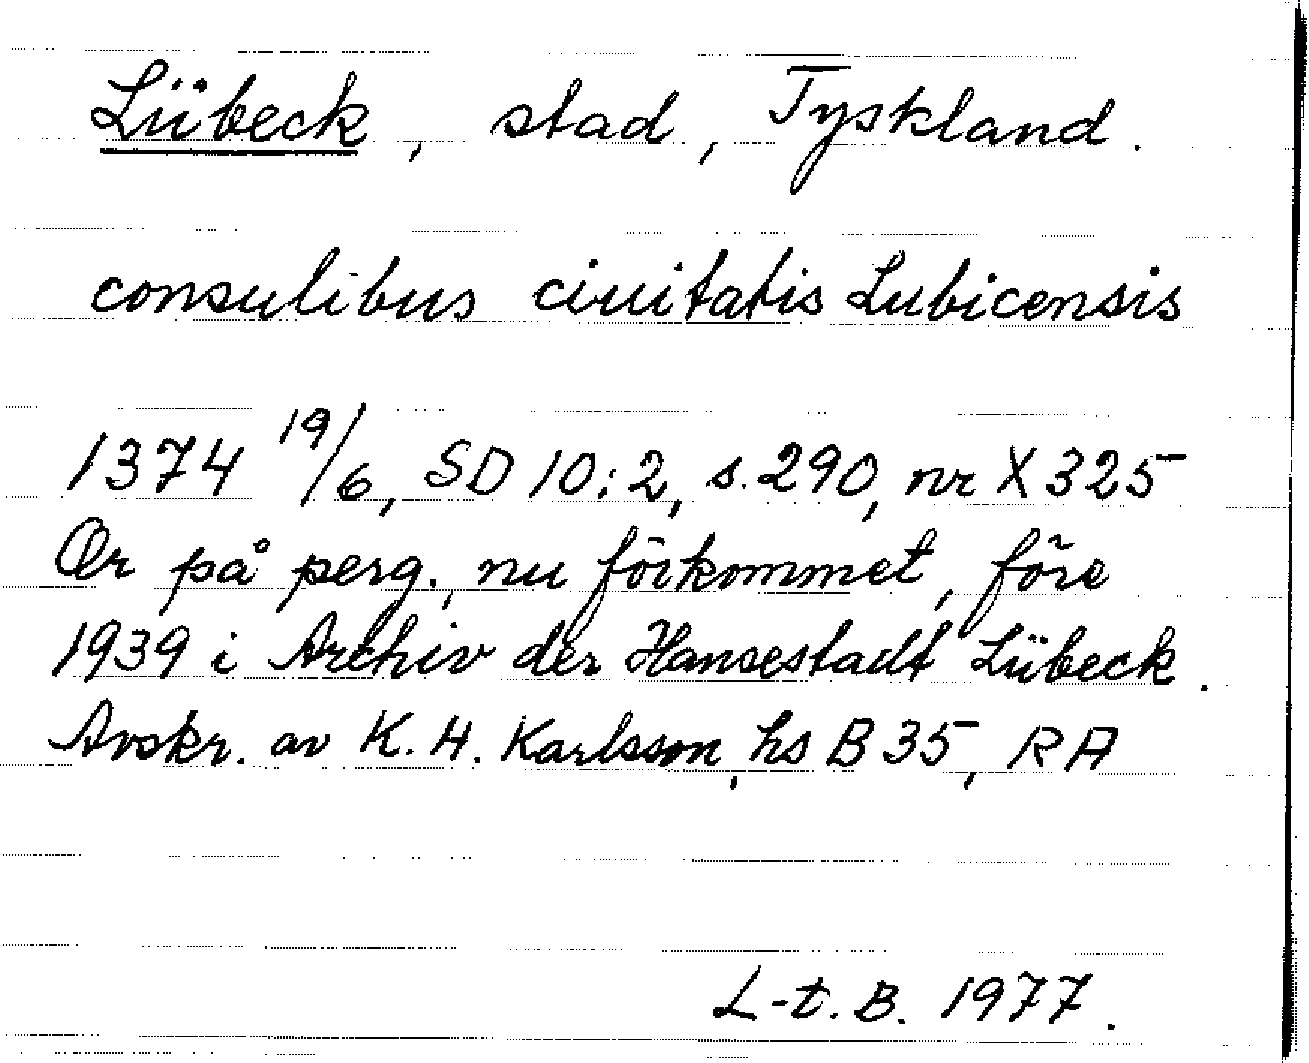 Lübeck, stad, Tyskland.
consulibus ciuitatis Lubicensis
1374 19/6, SD 10:2, s. 290, nr X 325
Or på perg., nu förkommet, före
1939 i Archiv der Hansestadt Lübeck.
Avskr. av K. H. Karlsson, hs B 35, RA
L-t. B. 1977.